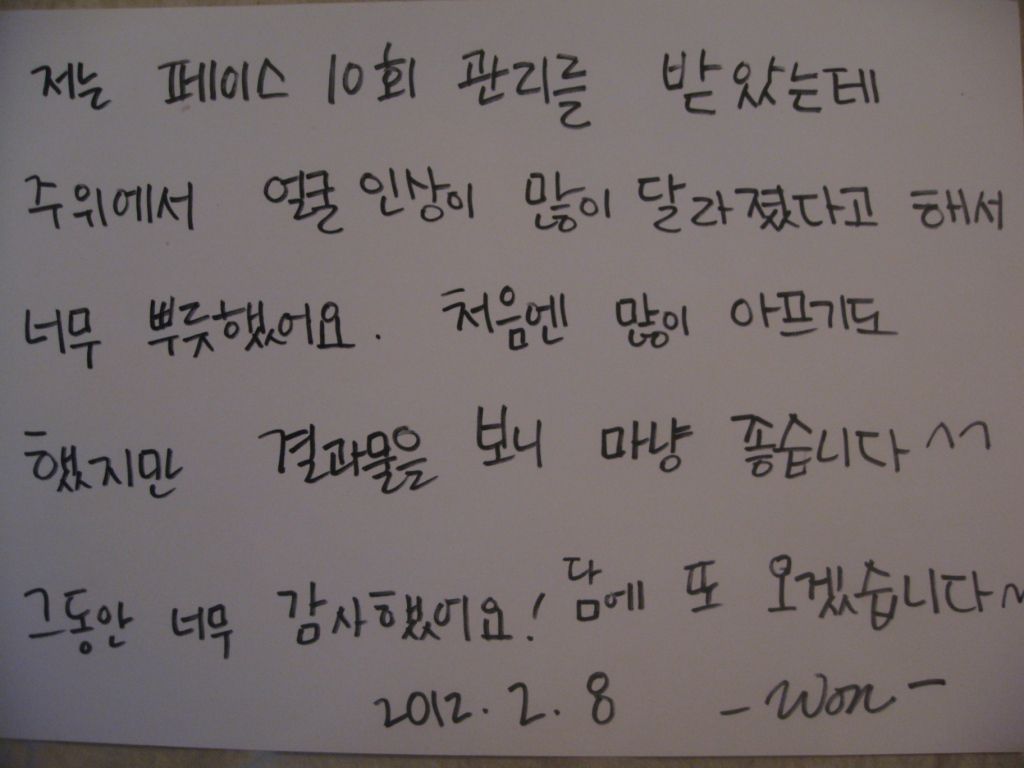 저는 페이스 10회 관리를 받았는데
주위에서 얼굴 인상이 많이 달라졌다고 해서
너무 뿌듯했어요. 처음엔 많이 아프기도
했지만 결과물을 보니 마냥 좋습니다 ^^
그동안 너무 감사했어요! 담에 또 오겠습니다~
2012. 2. 8 - Won -